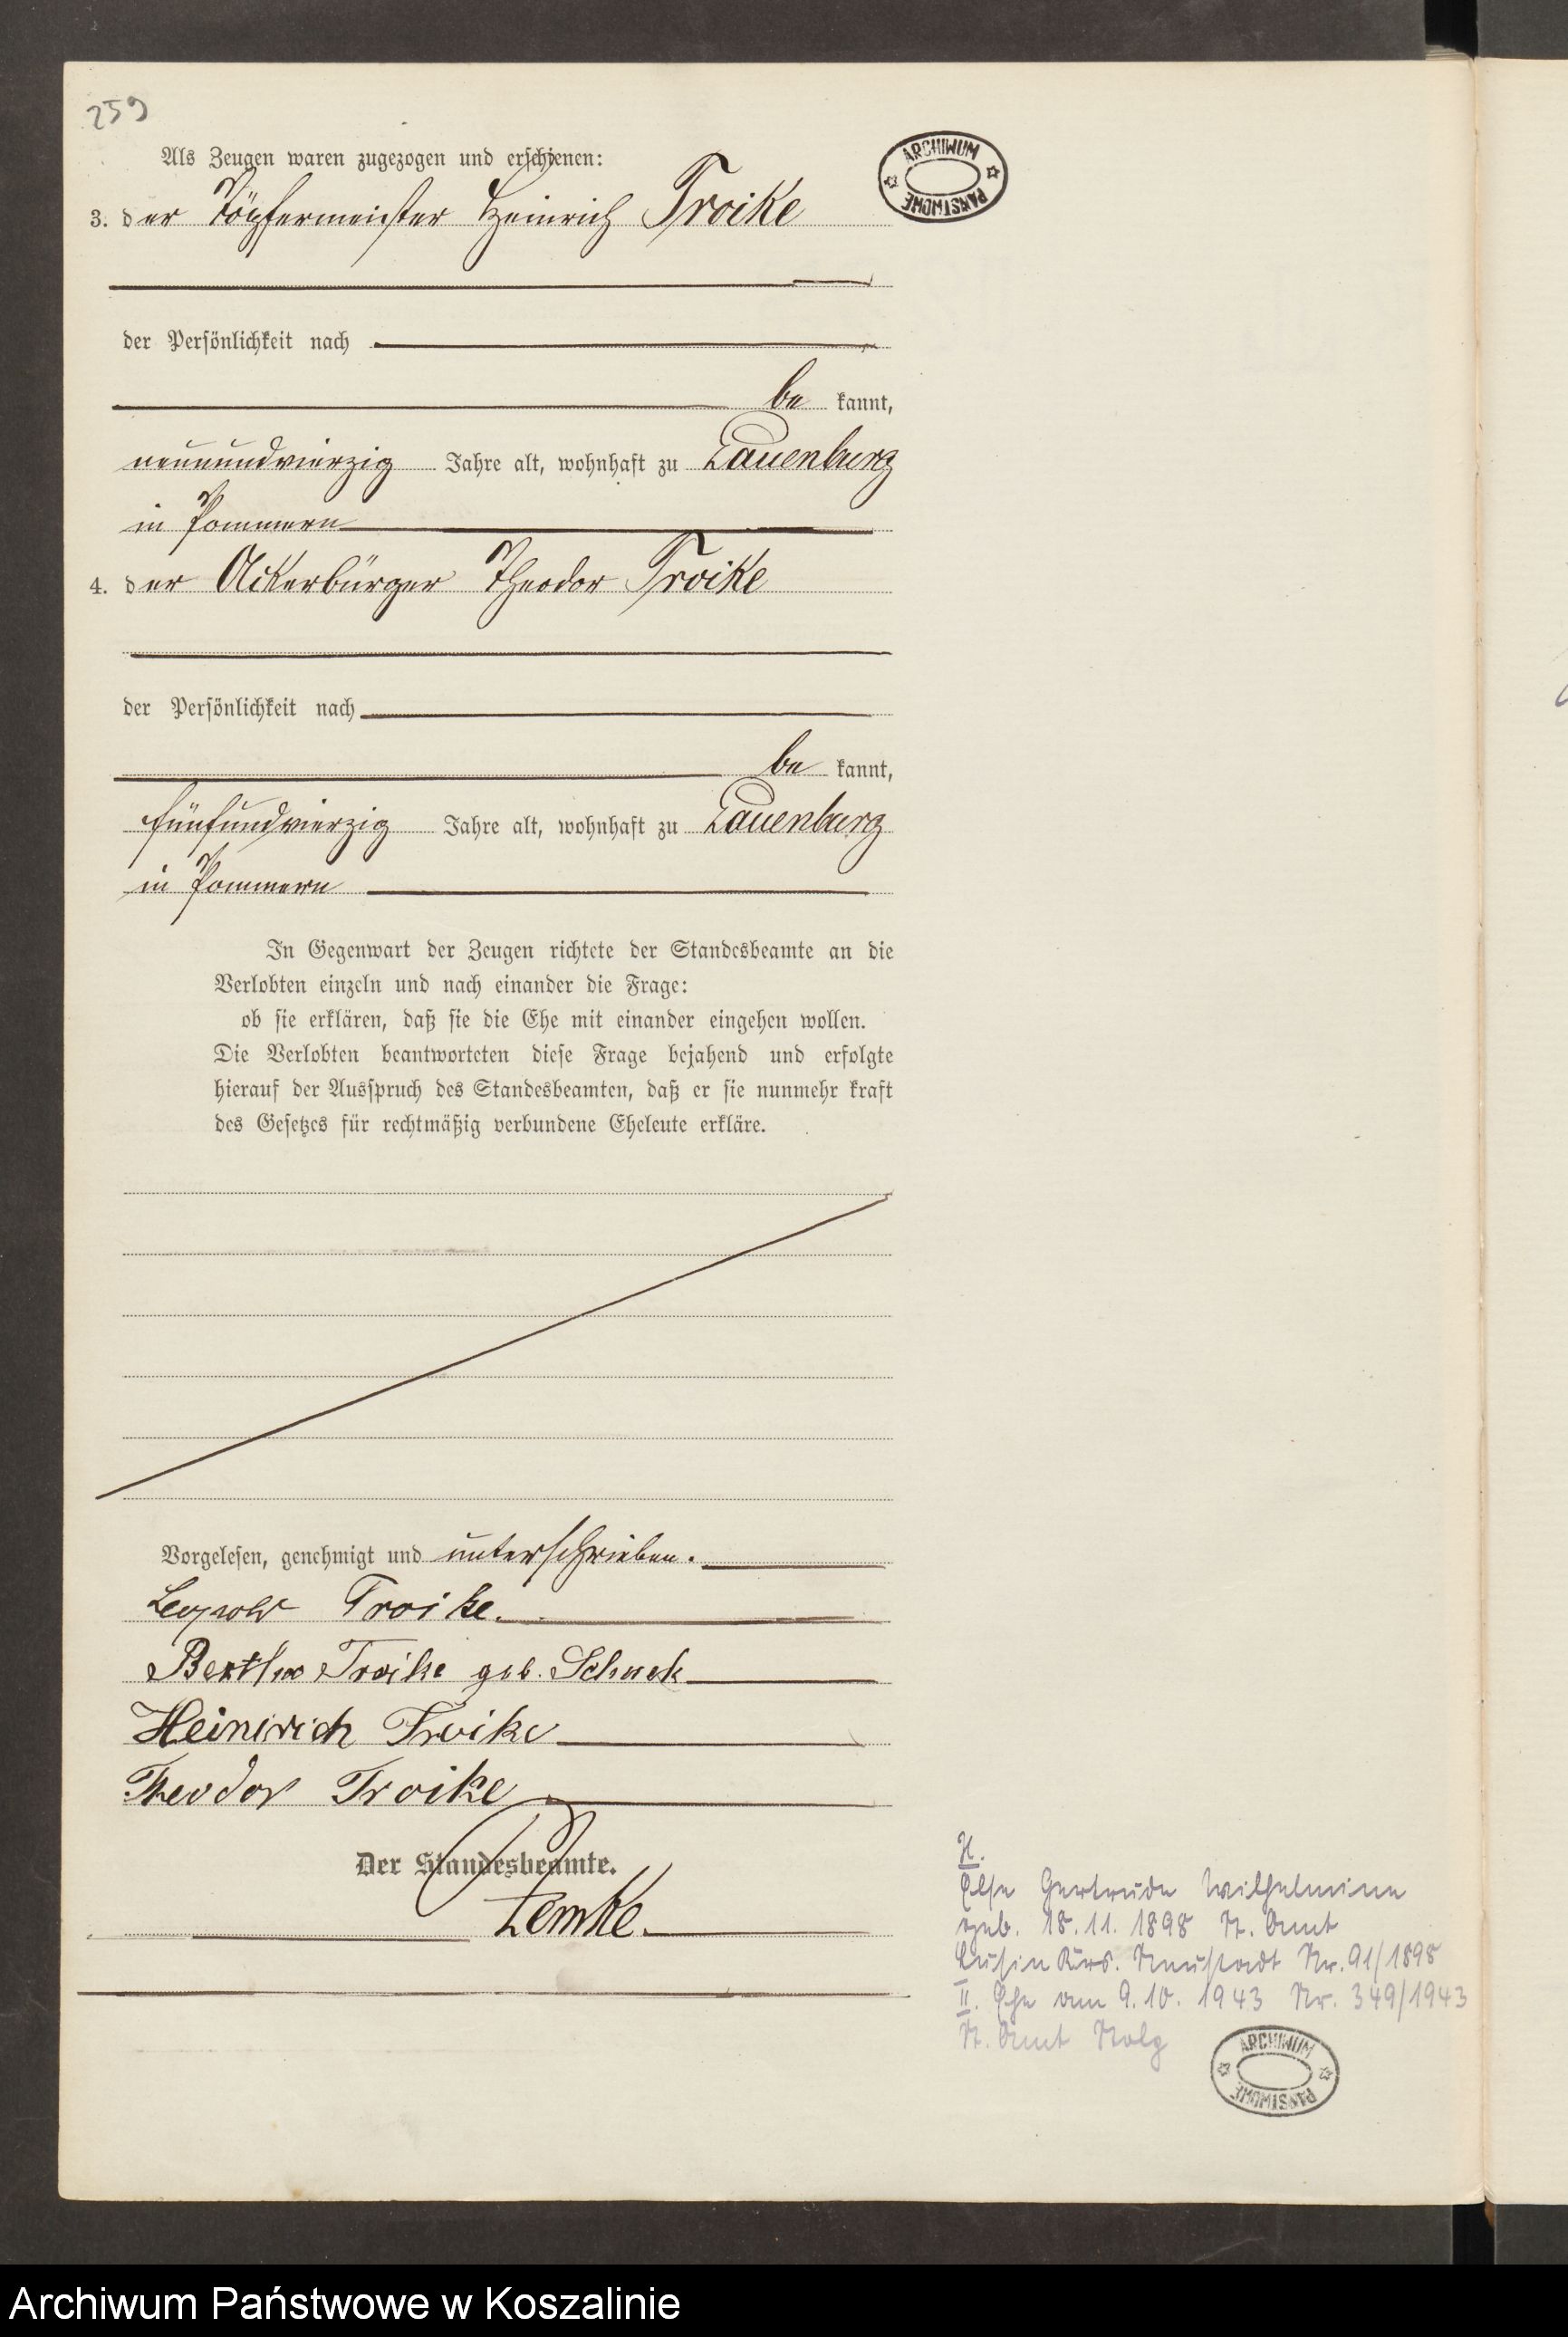 259
Als Zeugen waren zugezogen und erschienen:
3. der Töpfermeister Heinrich Troike
der Persönlichkeit nach
be kannt,
neunundvierzig Jahre alt, wohnhaft zu Lauenburg
in Pommern
4. der Ackerbürger Theodor Troike
der Persönlichkeit nach
be kannt,
fünfundvierzig Jahre alt, wohnhaft zu Lauenburg
in Pommern
In Gegenwart der Zeugen richtete der Standesbeamte an die
Verlobten einzeln und nach einander die Frage:
ob sie erklären, daß sie die Ehe mit einander eingehen wollen.
Die Verlobten beantworteten diese Frage bejahend und erfolgte
hierauf der Ausspruch des Standesbeamten, daß er sie nunmehr kraft
des Gesetzes für rechtmäßig verbundene Eheleute erkläre.
Vorgelesen, genehmigt und unterschrieben.
Leopold Troike.
Bertha Troike geb.
Heinrich Troike
Theodor Troike
Der Standesbeamte.
Lemke.
ARCHIWUM PAŃSTWOWE
Else Gertrude Wilhelmine
geb. 18.11.1898 St. Amt
Lusin Krs. Neustadt Nr. 91/1898
II. Ehe am 9.10.1943 Nr. 349/1943
St. Amt Stolp
ARCHIWUM PAŃSTWOWE
Archiwum Państwowe w Koszalinie